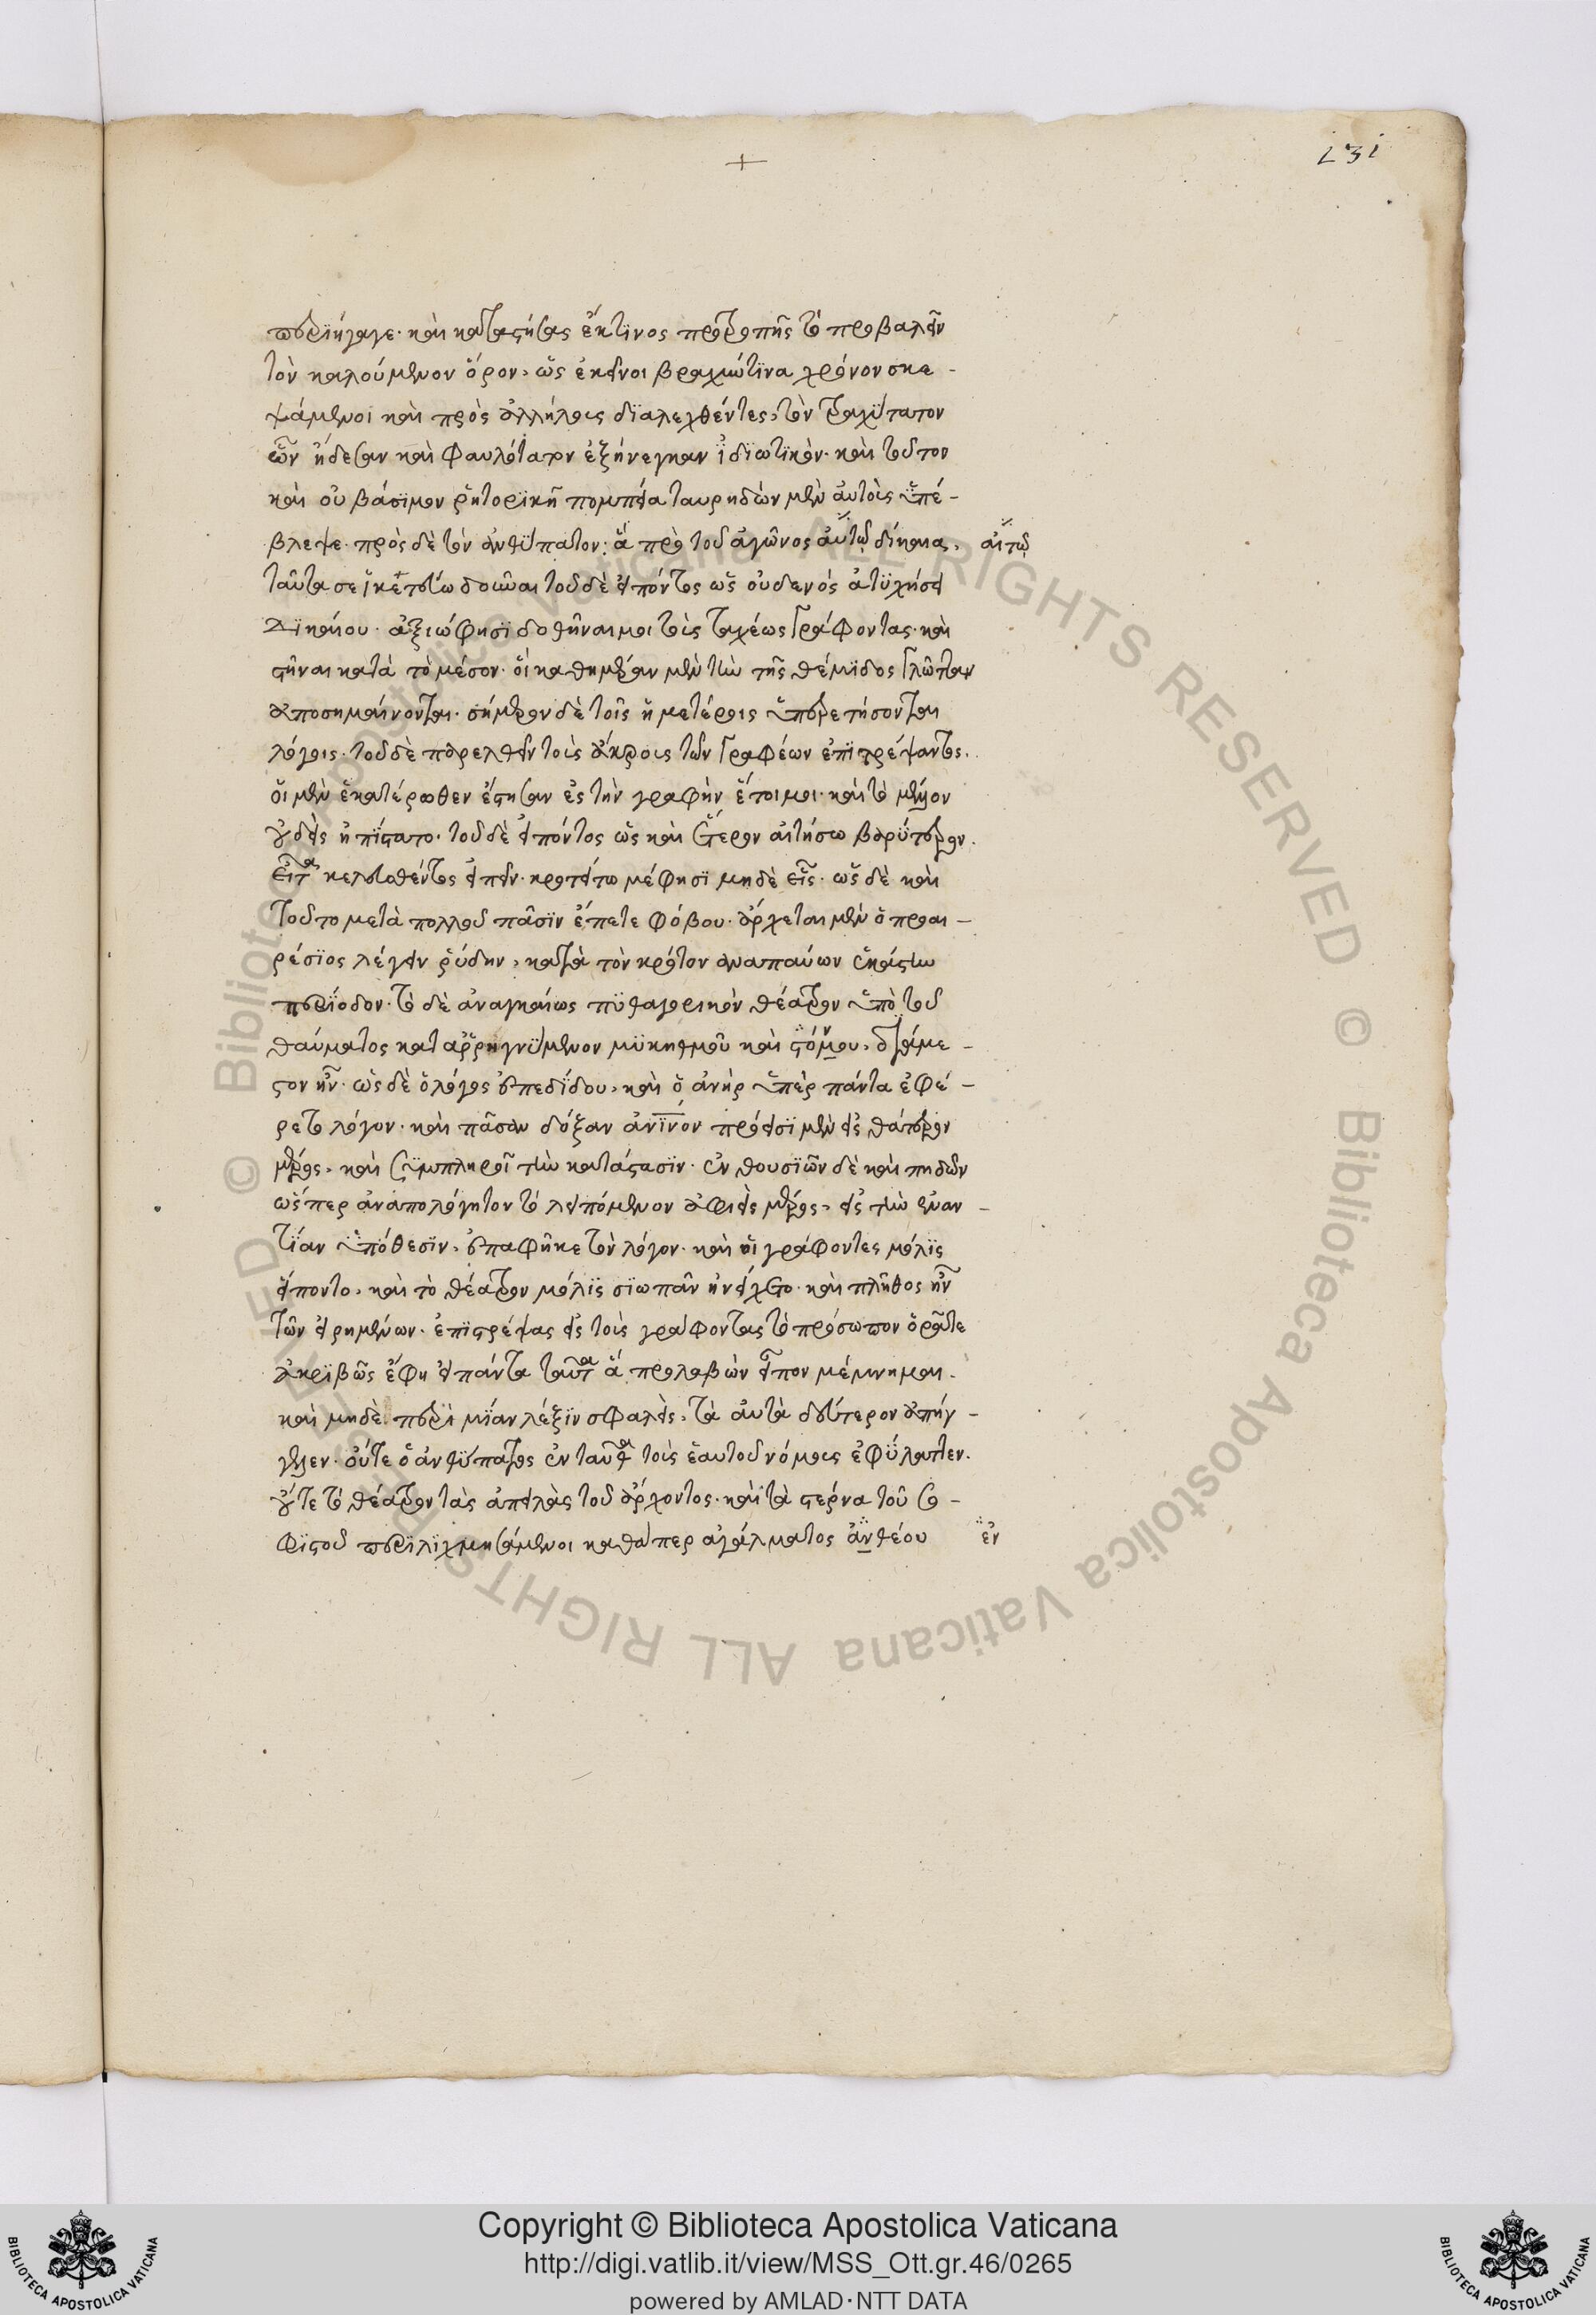 +
231
περιήγαγε· καὶ καταστήσας ἔκ τινος προτροπῆς τὸ προβαλεῖν
τὸν καλούμενον ὅρον, ὡς ἐκεῖνοι βραχύν τινα χρόνον σκε-
ψάμενοι καὶ πρὸς ἀλλήλους διαλεχθέντες, τὸν τραχύτατον
ὧν ᾔδεσαν καὶ φαυλότατον ἐξήνεγκαν ἰδιωτικόν· καὶ τοῦτον
καὶ οὐ βάσιμον ῥητορικῇ πομπείᾳ ταυρηδὸν μὲν αὐτοὺς ὑπέ-
βλεψε· πρὸς δὲ τὸν ἀνθύπατον· ἃ πρὸ τοῦ ἀγῶνος αὐτῶ δίκαια,
αἰτῶ
ταῦτά σε ἱκετεύω δοῦναι τοῦ δὲ εἰπόντος ὡς οὐδενὸς ἀτυχήσει
δικαίου· ἀξιῶ φησὶ δοθῆναί μοι τοὺς ταχέως γράφοντας· καὶ
στῆναι κατὰ τὸ μέσον· οἳ καθημέραν μὲν τὴν τῆς θέμιδος γλῶτταν
ἀποσημαίνονται· σήμερον δὲ τοῖς ἡμετέροις ὑπηρετήσονται
λόγοις· τοῦ δὲ παρελθεῖν τοὺς ἄκρους τῶν γραφέων ἐπιτρέψαντος.
οἱ μὲν ἑκατέρωθεν ἔστησαν ἐς τὴν γραφὴν ἕτοιμοι· καὶ τὸ μέλλον
οὐδεὶς ἠπίστατο· τοῦ δὲ εἰπόντος ὡς καὶ ἕτερον αἰτήσω βαρύτερον.
εἶτα κελευσθέντος εἰπεῖν· κροτείτω με φησὶ μηδὲ εἷς· ὡς δὲ καὶ
τοῦτο μετὰ πολλοῦ πᾶσιν ἐπέτα φόβου· ἄρχεται μὲν ὁ προαι-
ρέσιος λέγειν ῥύδην, κατὰ τὸν κρότον ἀναπαύων ἑκάστην
περίοδον· τὸ δὲ ἀναγκαίως πυθαγορικὸν θέατρον ὑπὸ τοῦ
θαύματος καταρρηγνύμενον μυκηθμοῦ καὶ στόνου, διάμε-
στον ἦν· ὡς δὲ ὁ λόγος ἐπεδίδου, καὶ ὁ ἀνὴρ ὑπὲρ πάντα ἐφέ-
ρετο λόγον· καὶ πᾶσαν δόξαν ἀνινόν πρόεισι μὲν εἰς θάτερον
μέρος, καὶ συμπληροῖ τὴν κατάστασιν· ἐνθουσιῶν δὲ καὶ πηδῶν
ὥσπερ ἀναπολόγητον τὸ λειπόμενον ἀφιεὶς μέρος, εἰς τὴν ἐναν-
τίαν ὑπόθεσιν, ἐπαφῆκε τὸν λόγον· καὶ οἱ γράφοντες μόλις
εἵποντο, καὶ τὸ θέατρον μόλις σιωπᾶν ἠνείχετο· καὶ πλῆθος ἦν
τῶν εἰρημένων· ἐπιστρέψας εἰς τοὺς γράφοντας τὸ πρόσωπον ὁρᾶτε
ἀκριβῶς ἔφη εἰ πάντα ταῦτα ἃ προλαβὼν εἶπον μέμνημαι.
καὶ μηδὲ περὶ μίαν λέξιν σφαλεὶς, τὰ αὐτὰ δεύτερον ἀπήγ-
γελλεν· οὔτε ὁ ἀνθύπατος ἐνταῦθα τοὺς ἑαυτοῦ νόμους ἐφύλαττεν.
οὔτε τὸ θέατρον τὰς ἀπειλὰς τοῦ ἄρχοντος· καὶ τὰ στέρνα τοῦ σο-
φιστοῦ περιλιχμησάμενοι καθάπερ ἀγάλματος ἀνθέου
ἐν
Copyright © Biblioteca Apostolica Vaticana
http://digi.vatlib.it/view/MSS_Ott.gr.46/0265
powered by AMLAD·NTT DATA